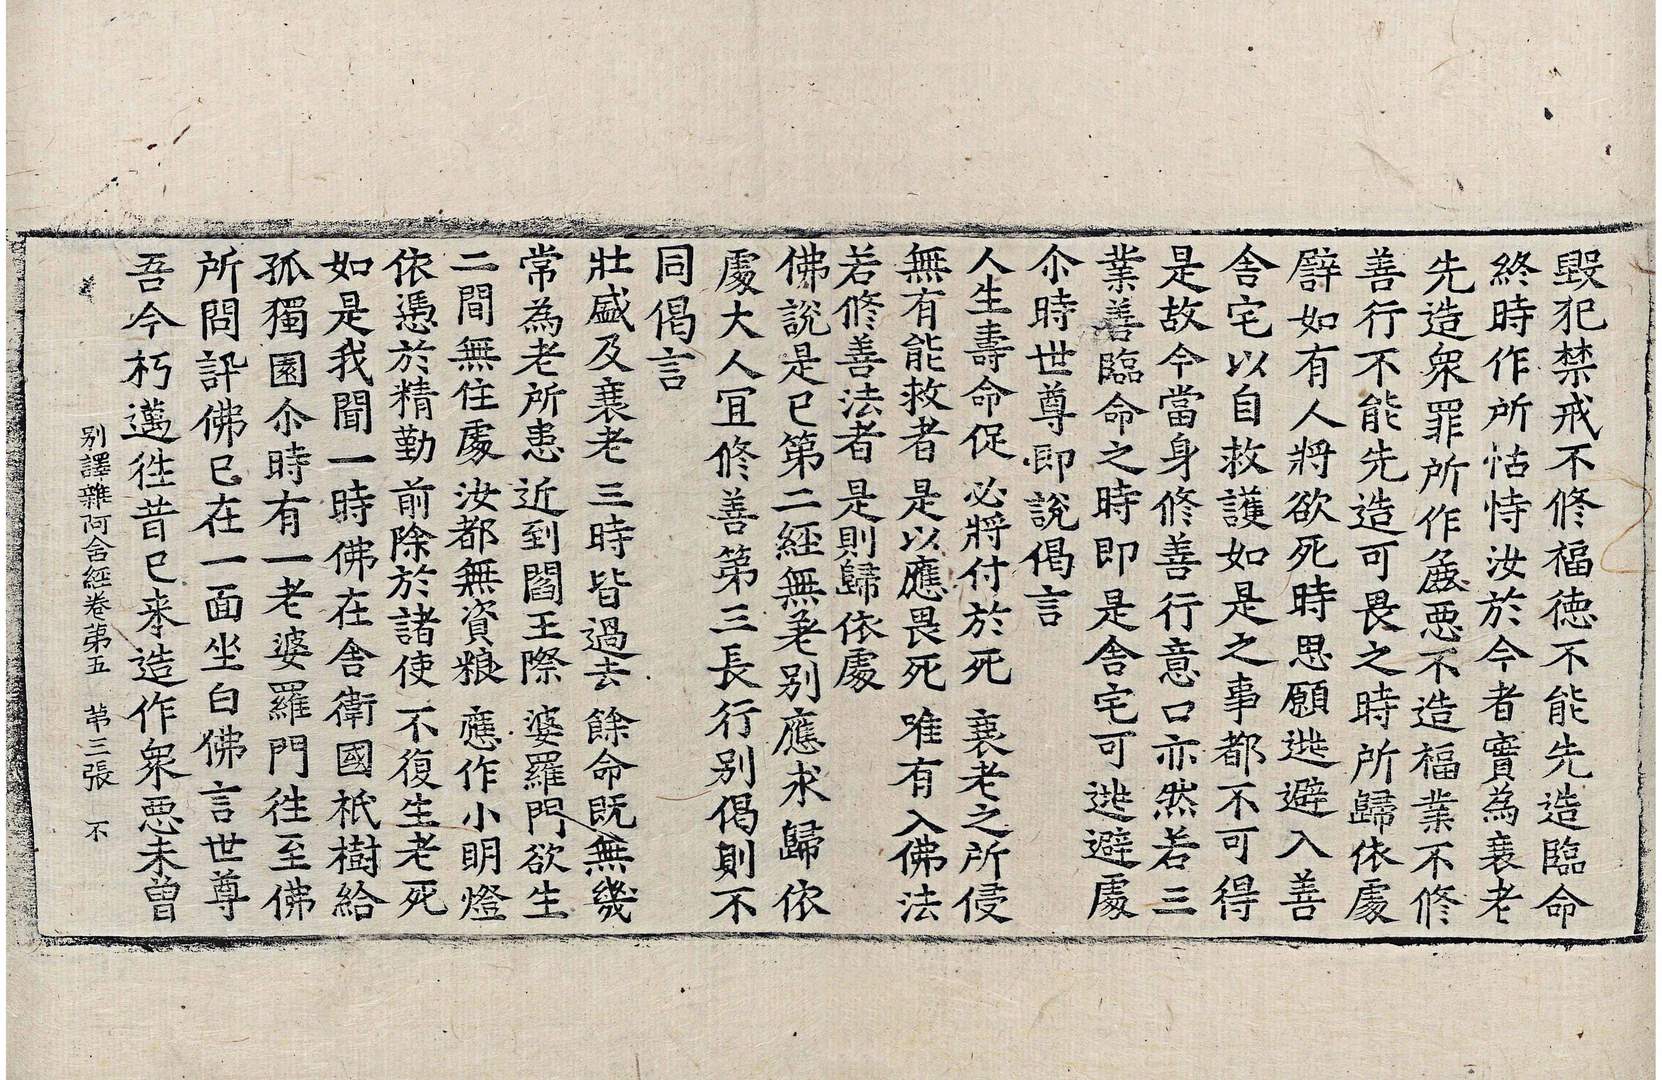 毀犯禁戒不修福徳不能先造臨命
終時作所怙恃汝於今者實為衰老
先造衆罪所作麁悪不造福業不修
善行不能先造可畏之時所歸依處
譬如有人將欲死時思願逃避入善
舎宅以自救護如是之事都不可得
是故今當身修善行意口亦然若三
業善臨命之時即是舎宅可逃避處
尒時世尊即說偈言
人生壽命促 必將付於死 衰老之所侵
無有能救者 是以應畏死 唯有入佛法
若修善法者 是則歸依處
佛說是已第二經無老別應求歸依
處大人冝修善第三長行別偈則不
同偈言
壯盛及衰老 三時皆過去 餘命既無幾
常為老所患 近到閻王際 婆羅門欲生
二間無住處 汝都無資粮 應作小明燈
依憑於精勤 前除於諸使 不復生老死
如是我聞一時佛在舎衛國祇樹給
孤獨園尒時有一老婆羅門往至佛
所問訊佛已在一面坐白佛言世尊
吾今朽邁徃昔已来造作衆悪未曽
別譯雜阿含經卷第五 苐三張 不